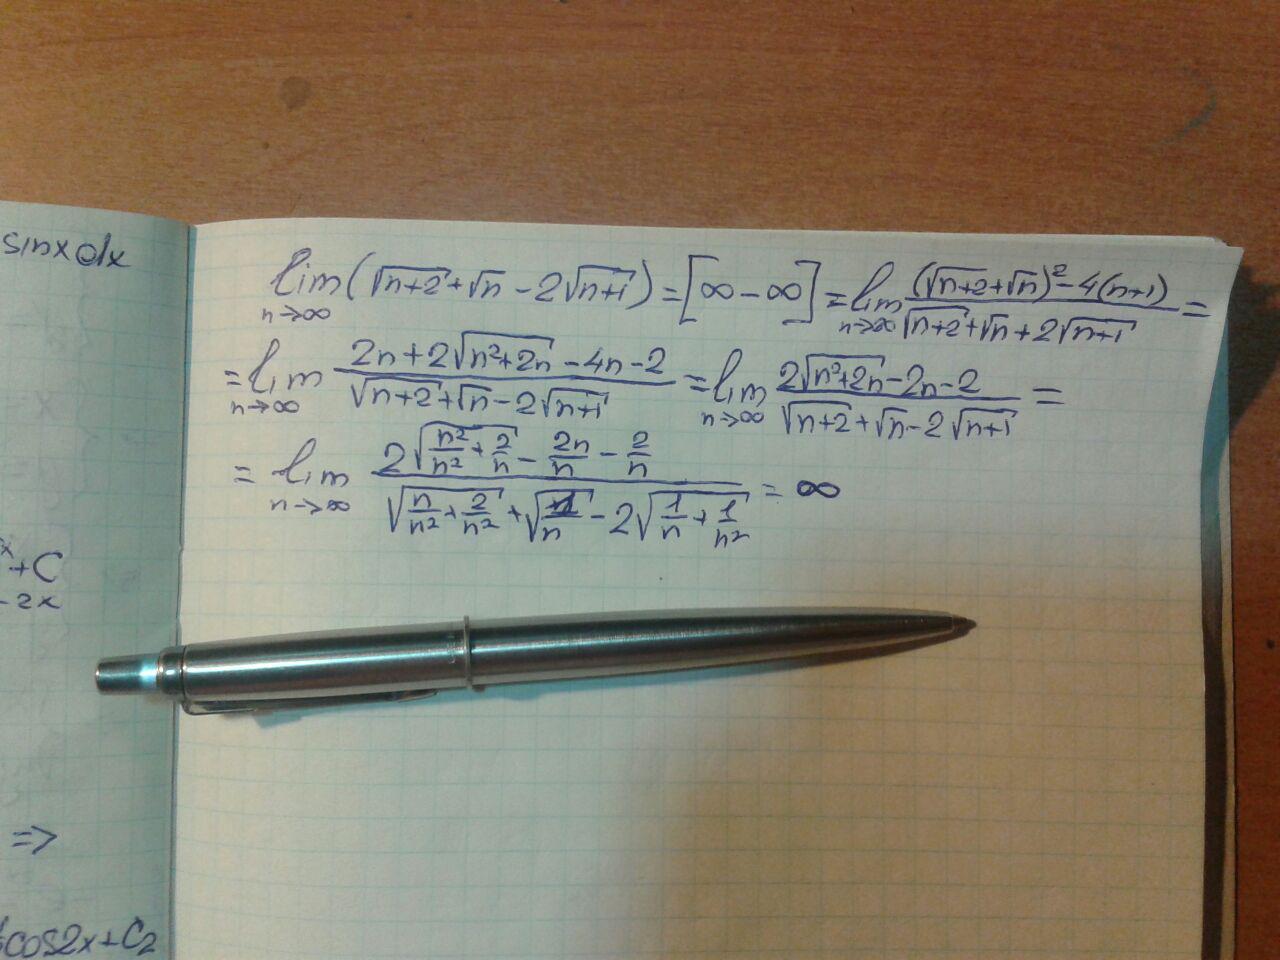 sinx dx
lim n→∞ (√(n+2) + √n - 2√(n+1)) = [∞ - ∞] = lim n→∞ ((√(n+2) + √n)² - 4(n+1)) / (√(n+2) + √n + 2√(n+1)) =
= lim n→∞ (2n + 2√(n²+2n) - 4n - 2) / (√(n+2) + √n - 2√(n+1)) = lim n→∞ (2√(n²+2n) - 2n - 2) / (√(n+2) + √n - 2√(n+1)) =
= lim n→∞ (2√(n²/n² + 2/n) - 2n/n - 2/n) / (√(n/n² + 2/n²) + √(1/n) - 2√(1/n + 1/n²)) = ∞
x + C
- 2x
=>
cos2x + C₂